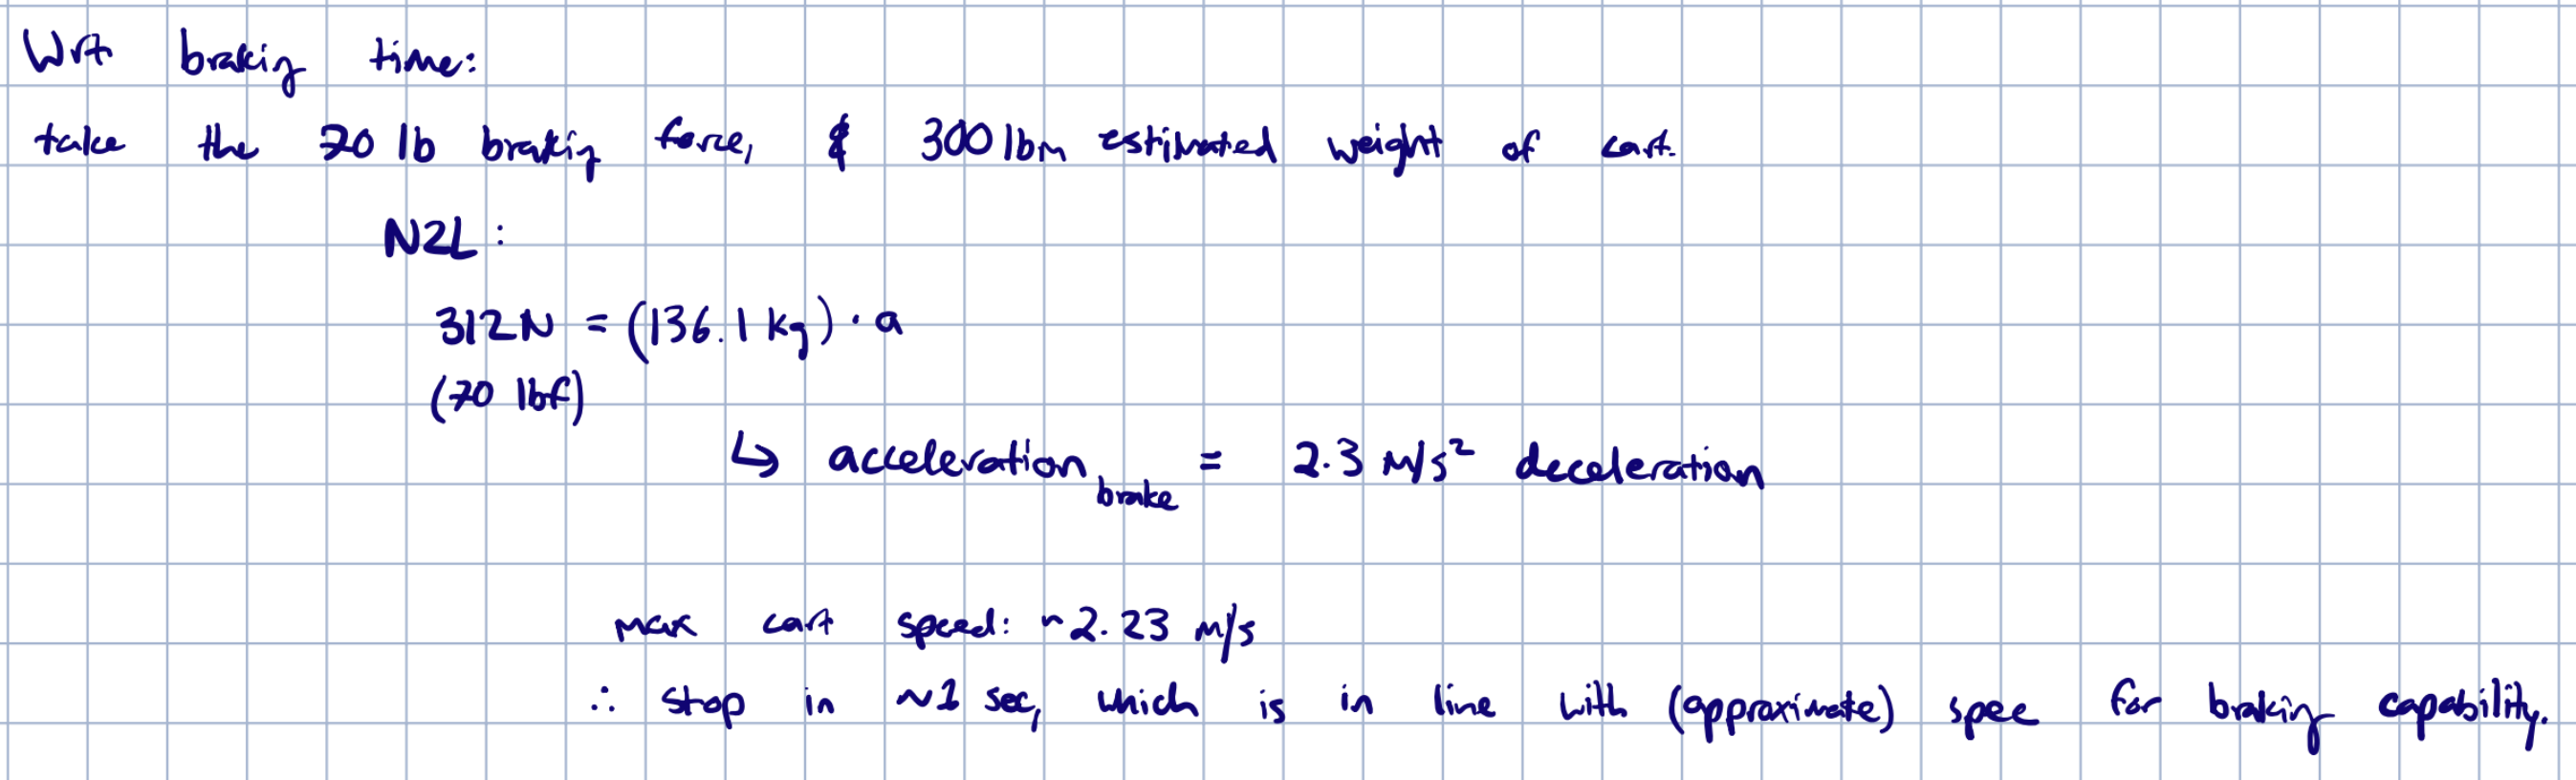 Wrt braking time:
take the 70 lb braking force, & 300 lbm estimated weight of cart.
N2L:
312N = (136.1 kg) · a
(70 lbf)
↳ acceleration_brake = 2.3 m/s² deceleration
max cart speed: ~2.23 m/s
∴ stop in ~1 sec, which is in line with (approximate) spec for braking capability.